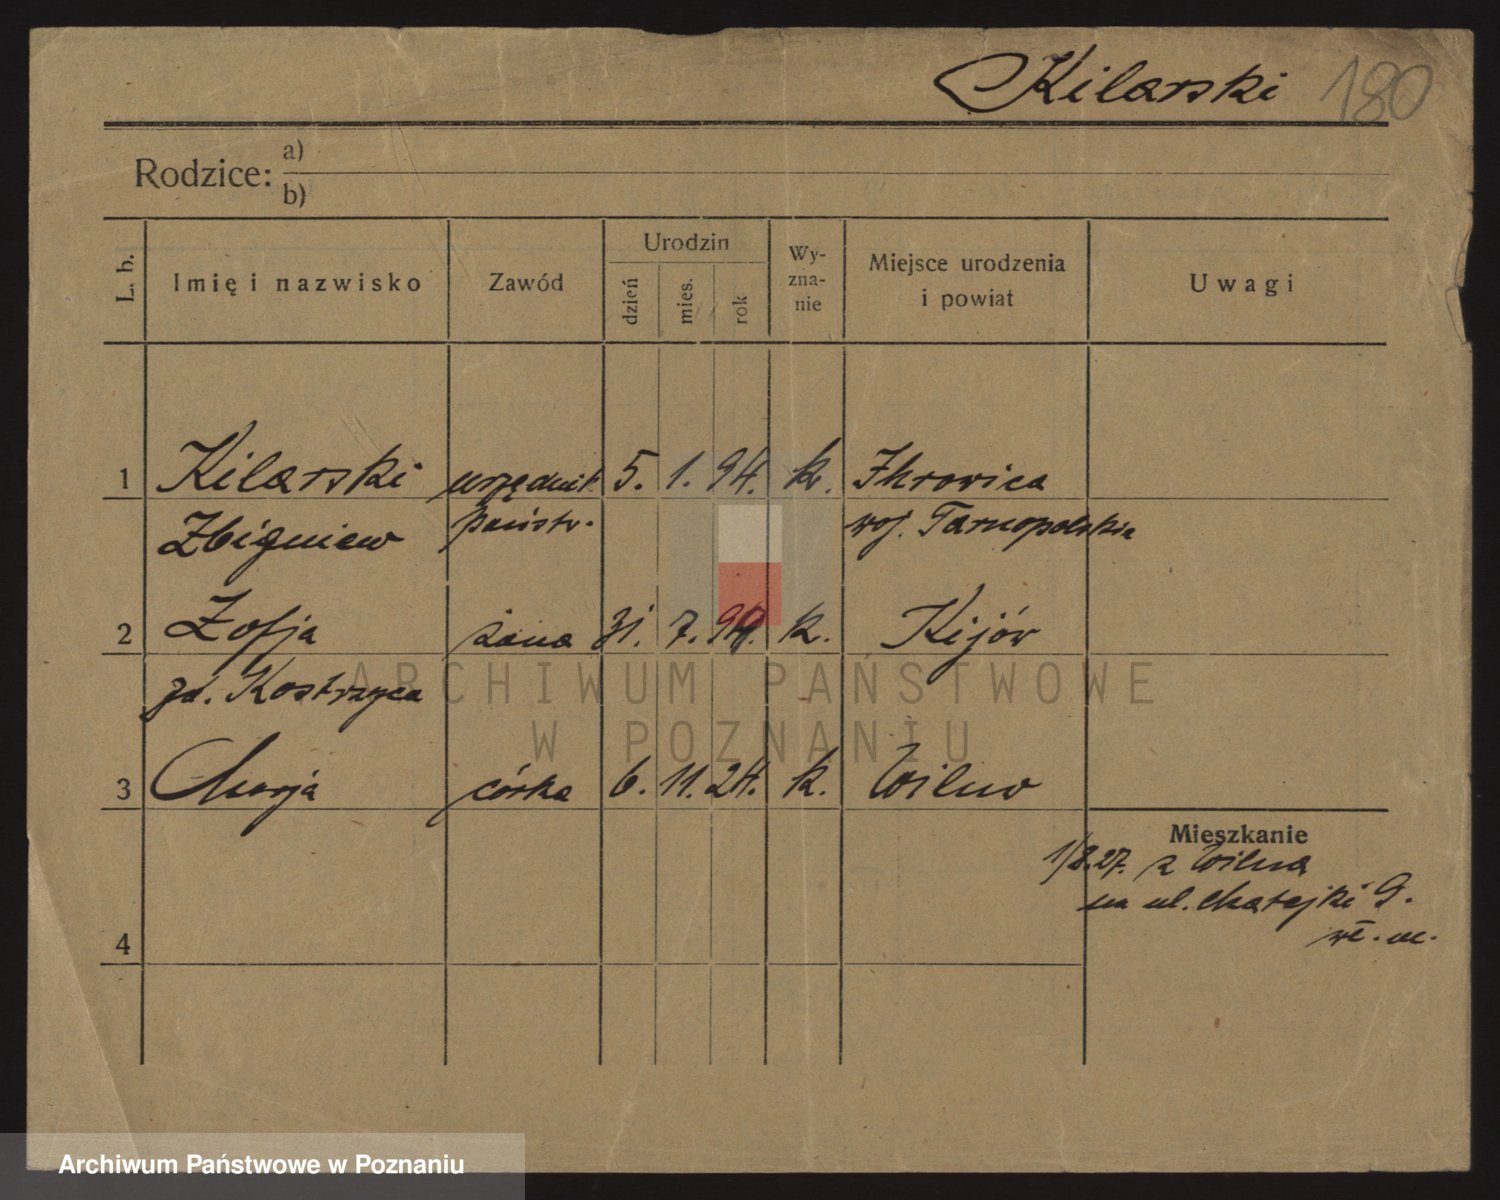 Kilarski 180
Rodzice: a)
b)
L. b. Imię i nazwisko Zawód Urodzin dzień mies. rok Wy-zna-nie Miejsce urodzenia i powiat Uwagi
1 Kilarski urzędnik 5. 1. 94. k. Ihrowica
Zbigniew państw. woj. Tarnopolskie
2 Zofja żona 31. 7. k. Kijów
zd. Kostrzyca
3 Marja córka 6. 11. 24. k. Wilno
Mieszkanie
1/8.27. z Wilna
na ul. Matejki 9.
4
ARCHIWUM PAŃSTWOWE
W POZNANIU
Archiwum Państwowe w Poznaniu